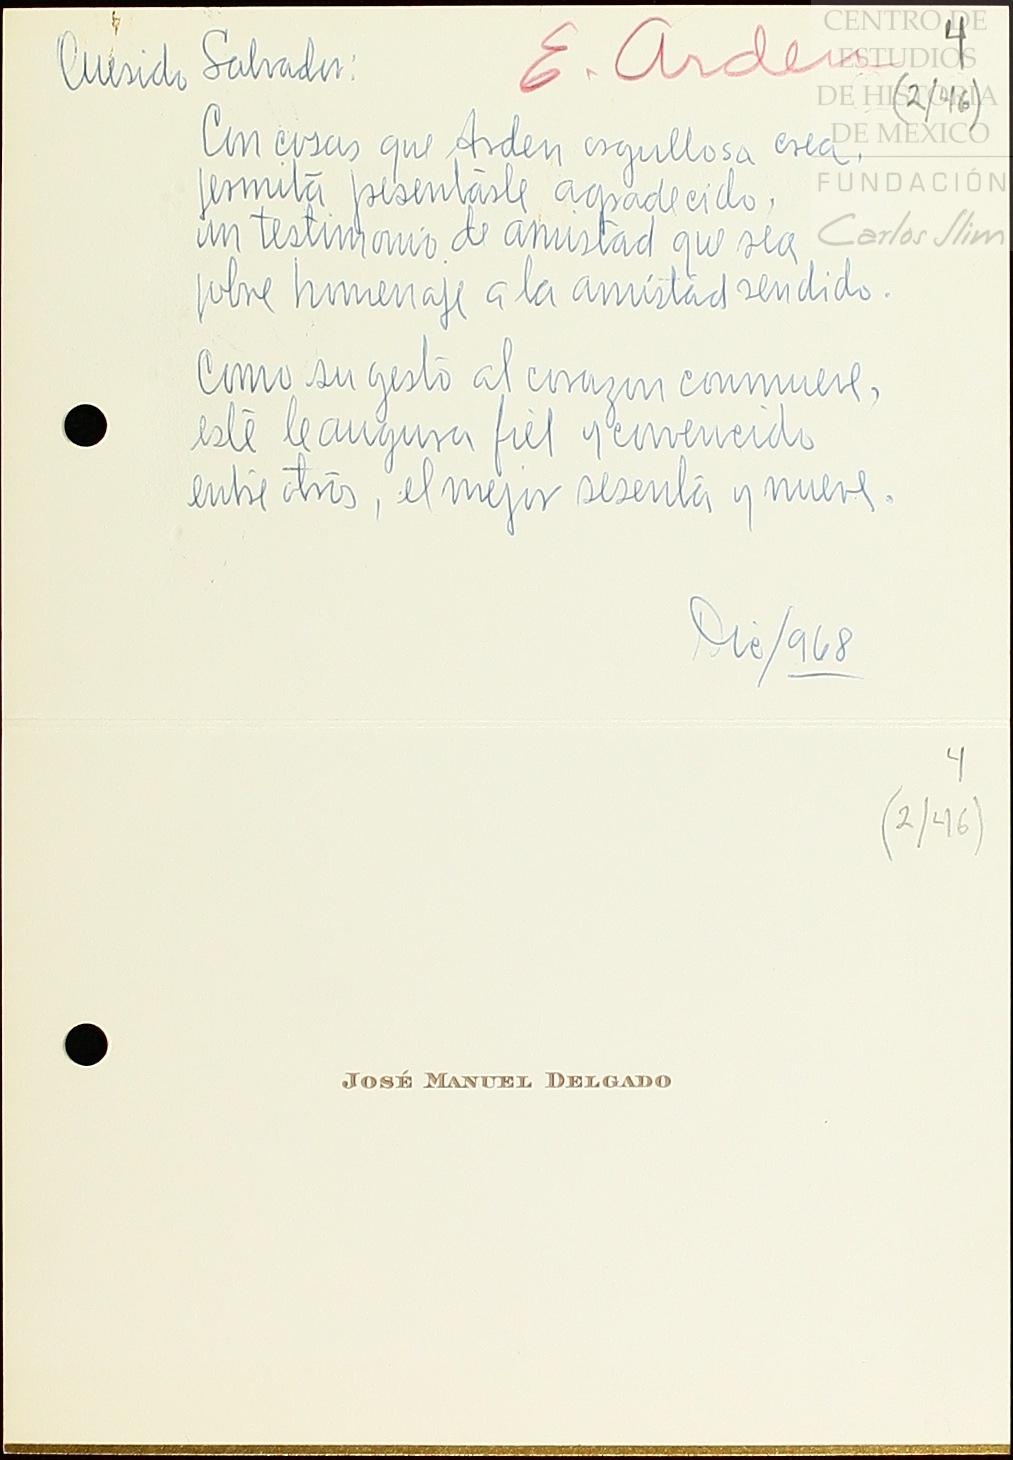 Querido Salvador:
E. Arden
4
(2/46)
CENTRO DE
ESTUDIOS
DE HISTORIA
DE MEXICO
FUNDACIÓN
Carlos Slim
Con cosas que Arden orgullosa crea,
permita presentarle agradecido,
un testimonio de amistad que sea
pobre homenaje a la amistad rendido.
Como su gesto al corazon conmueve,
este le augura fiel y convencido
entre otros, el mejor sesenta y nueve.
Dic/968
4
(2/46)
JOSÉ MANUEL DELGADO